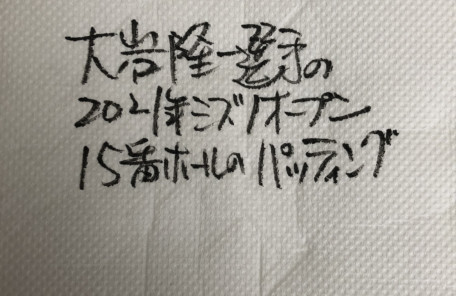 大岩隆一選手の
2021年ミズノオープン
15番ホールのパッティング